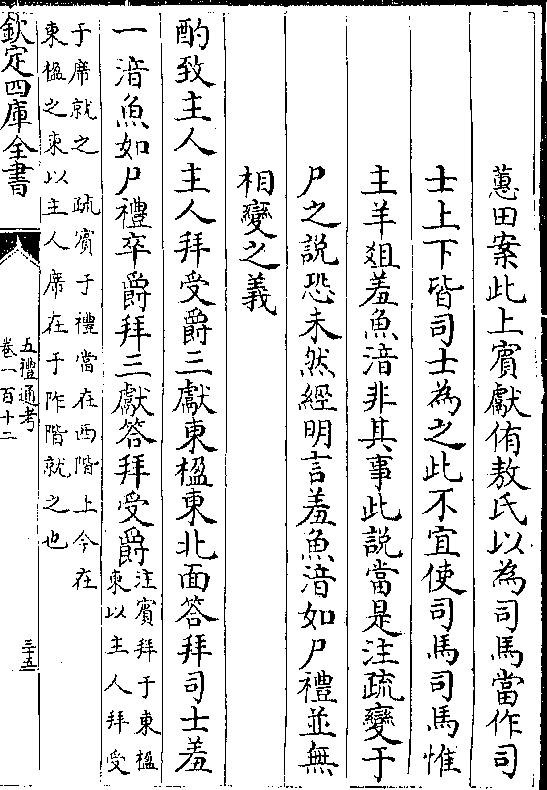 蕙田案此上賓獻侑敖氏以為司馬當作司
士上下皆司士為之此不宜使司馬司馬惟
主羊俎羞魚湆非其事此説當是注疏變于
尸之說恐未然經明言羞魚湆如尸禮並無
相變之義
酌致主人主人拜受爵三獻東楹東北面答拜司士羞
一湆魚如尸禮卒爵拜三獻答拜受爵注賓拜于東楹
東以主人拜受
于席就之　疏賓于禮當在西階上今在
東楹之東以主人席在于阼階就之也
欽定四庫全書
五禮通考
卷一百十二
三五